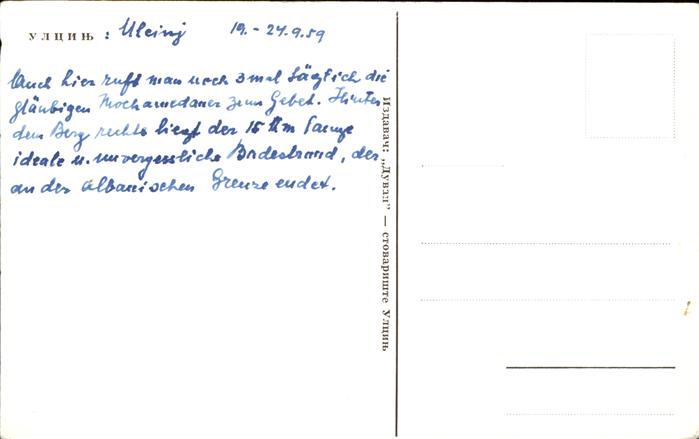 УЛЦИЊ : Ulcinj 19. - 24.9.59
Auch hier ruft man noch 3 mal täglich die
gläubigen Mochamedaner zum Gebet. Hinter
dem Berg rechts liegt der 15 Km lange
ideale u. unvergessliche Badestrand, der
an der albanischen Grenze endet.
Издавач: „Дувал” — стовариште Улцињ